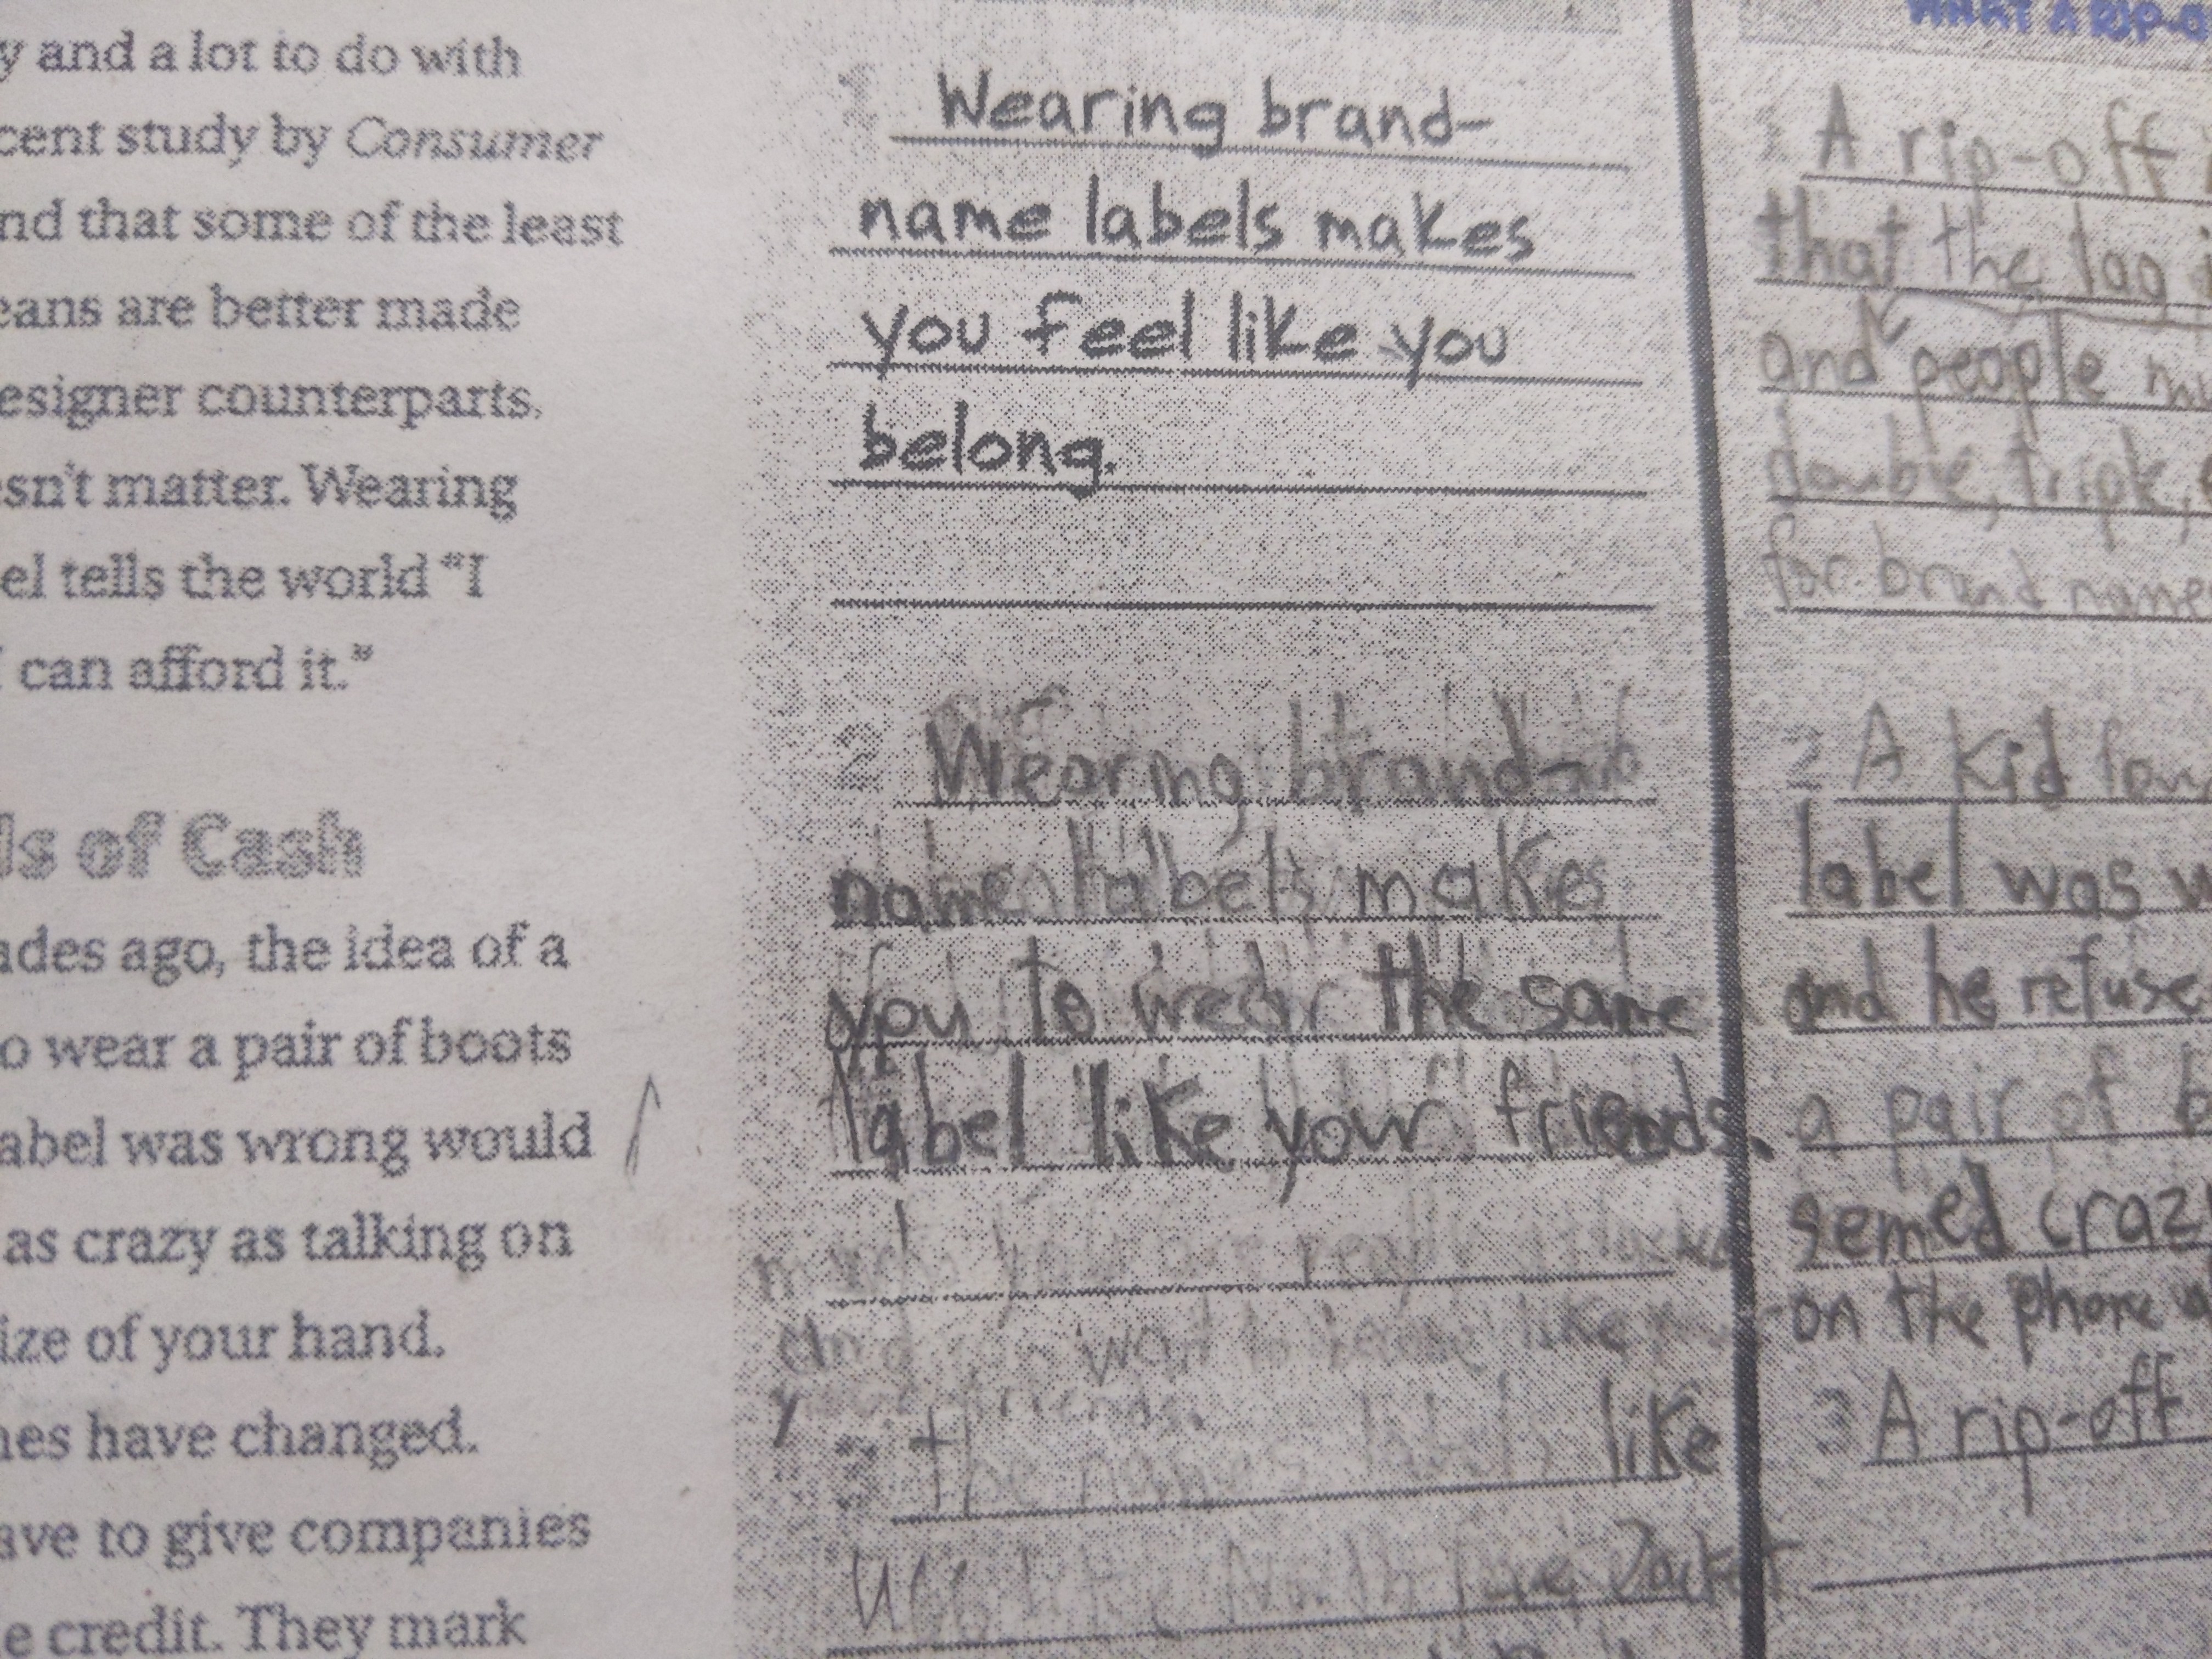 y and a lot to do with
cent study by Consumer
nd that some of the least
eans are better made
esigner counterparts.
esn't matter. Wearing
el tells the world "I
I can afford it."
ls of Cash
ades ago, the idea of a
o wear a pair of boots
abel was wrong would
as crazy as talking on
ize of your hand.
nes have changed.
ave to give companies
e credit. They mark
1 Wearing brand-
name labels makes
you feel like you
belong.
2 Wearing brand-
name labels makes
you to wear the same
label like your friends.
and want to like
your friends.
3 the names labels like
North Face Jacket
WHAT A RIP-O
1 A rip-off
that the tag
and people
double, triple,
for brand name
2 A kid
label was w
and he refuse
a pair of b
semed craz
on the phone w
3 A rip-off